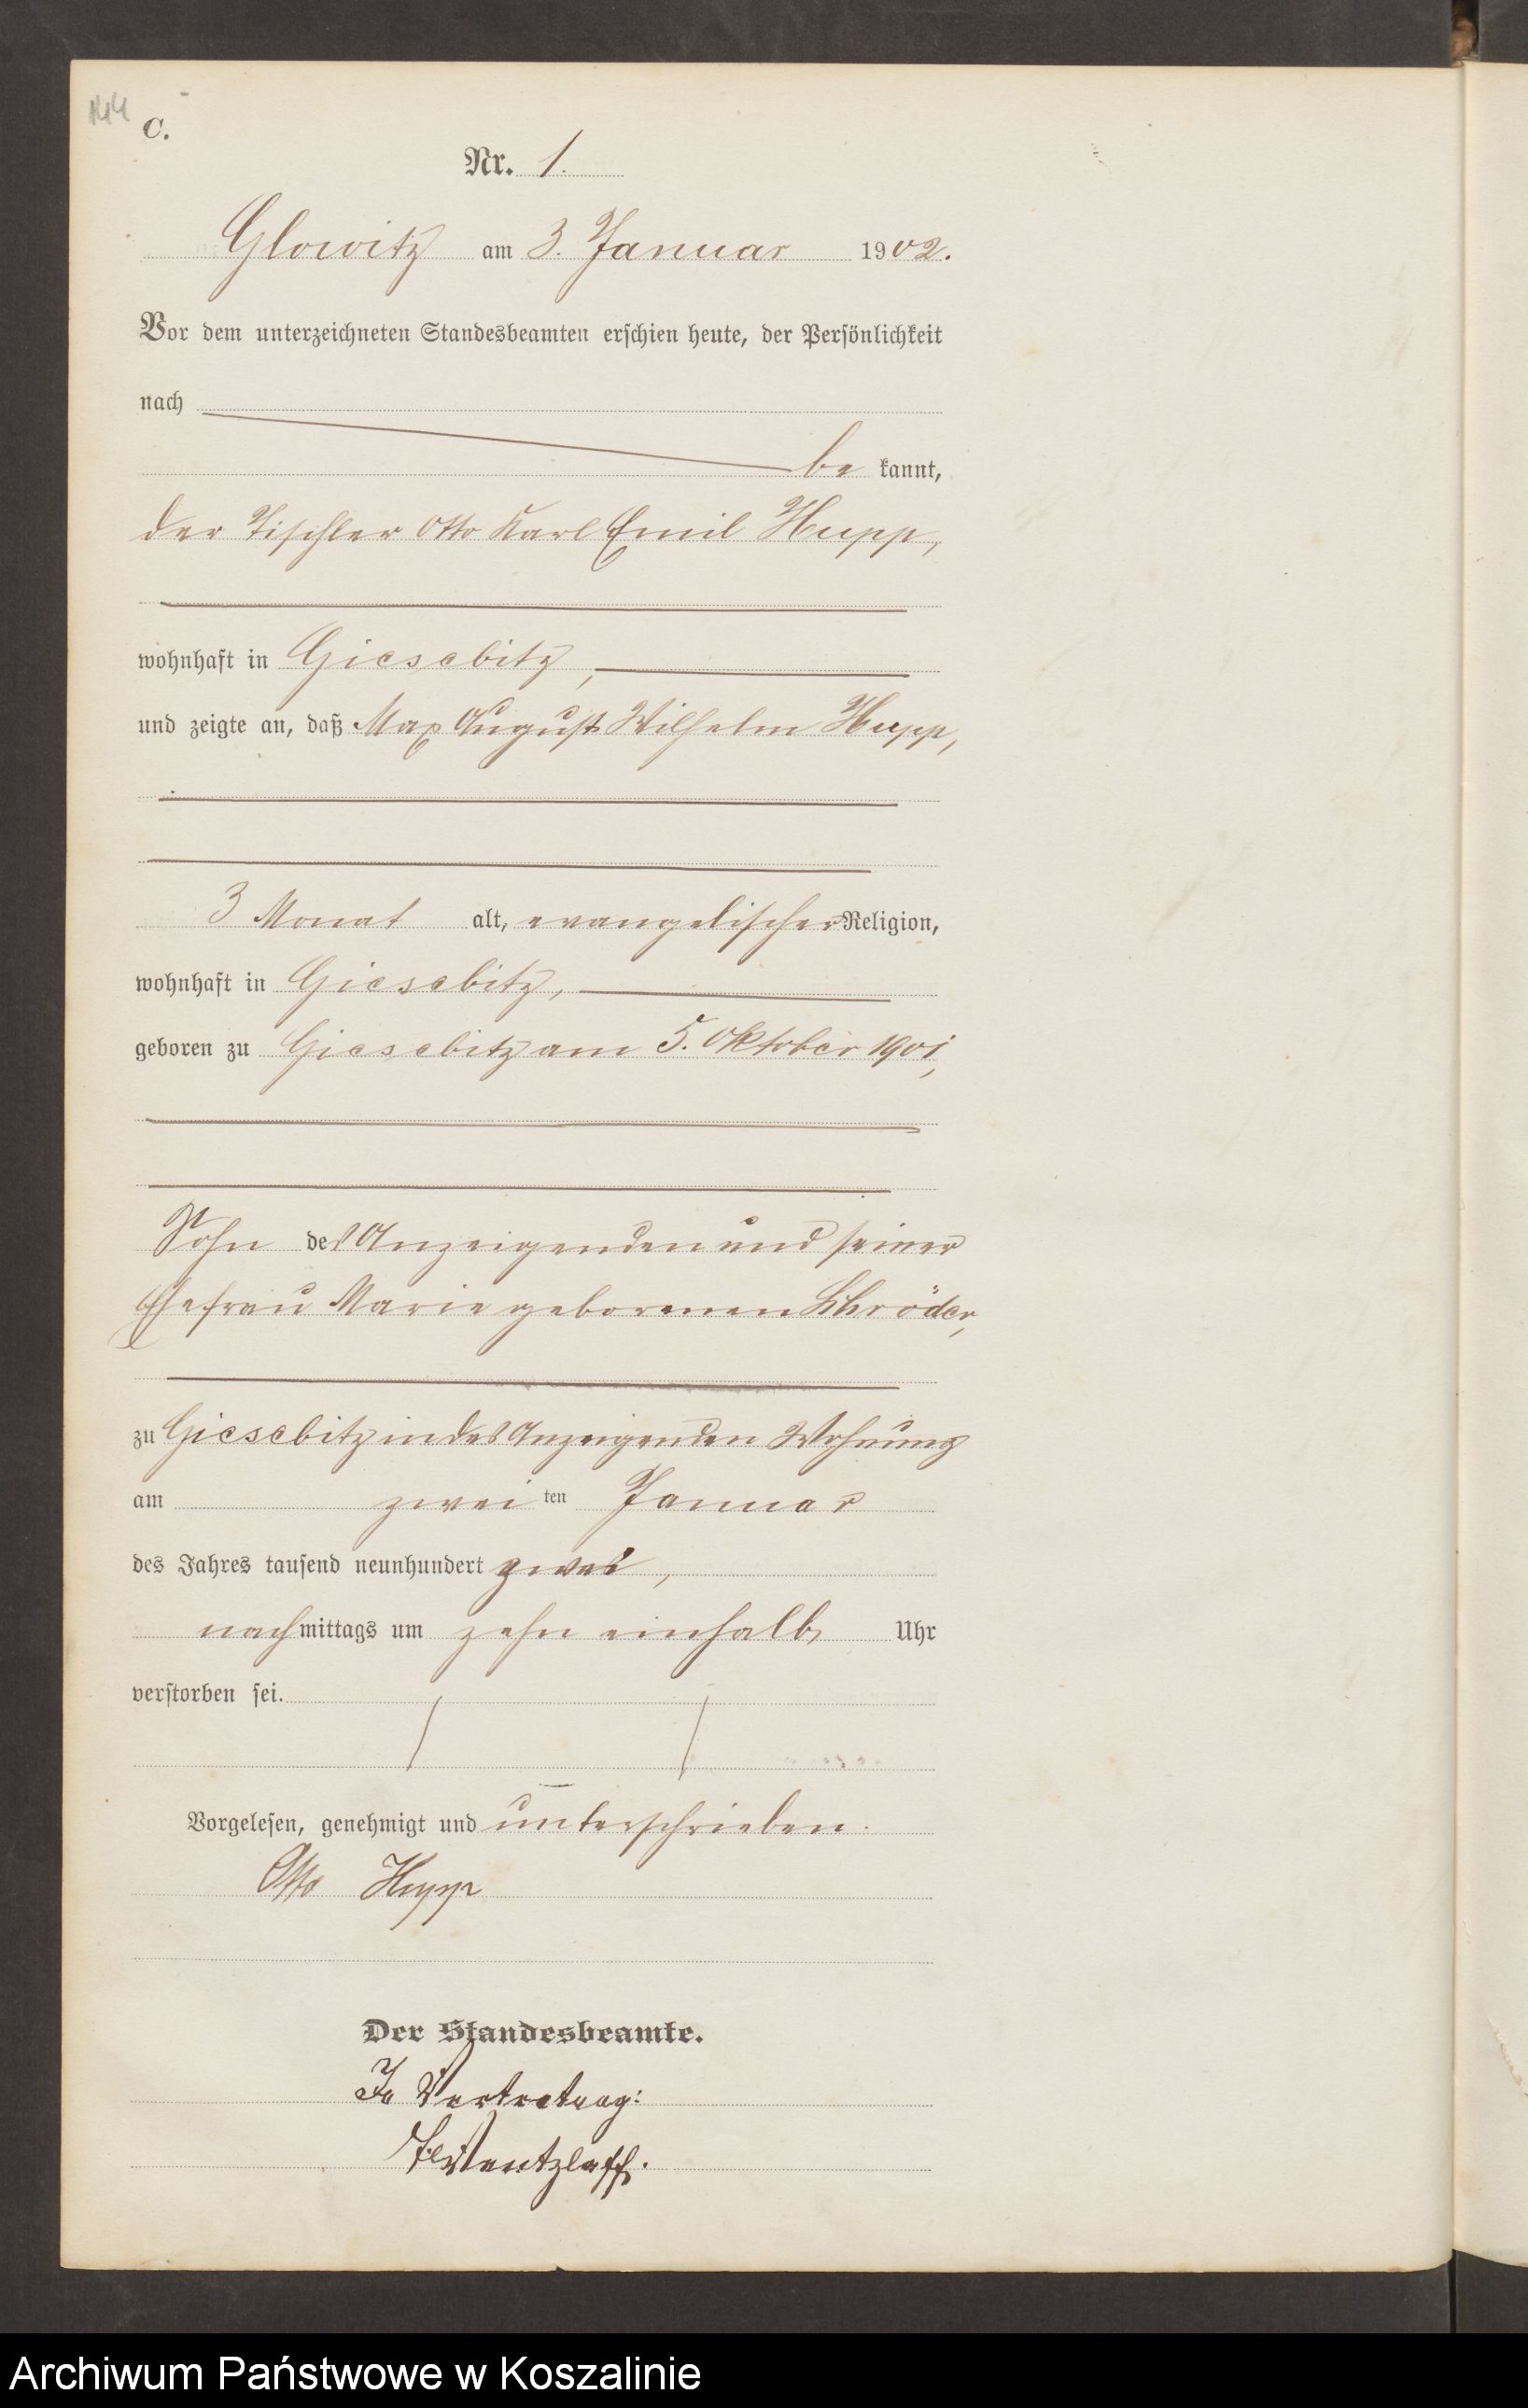 144
C.
Nr. 1.
Glowitz am 3. Januar 1902.
Vor dem unterzeichneten Standesbeamten erschien heute, der Persönlichkeit
nach
be kannt,
der Tischler Otto Karl Emil Hupp,
wohnhaft in Giesebitz,
und zeigte an, daß Max August Wilhelm Hupp,
3 Monat alt, evangelischer Religion,
wohnhaft in Giesebitz,
geboren zu Giesebitz am 5. Oktober 1901,
Sohn des Anzeigenden und seiner
Ehefrau Marie geborenen Schröder,
zu Giesebitz in des Anzeigenden Wohnung
am zweiten Januar
des Jahres tausend neunhundert zwei,
nachmittags um zehn einhalb Uhr
verstorben sei.
Vorgelesen, genehmigt und unterschrieben.
Otto Hupp
Der Standesbeamte.
In Vertretung:
Wentzlaff.
Archiwum Państwowe w Koszalinie